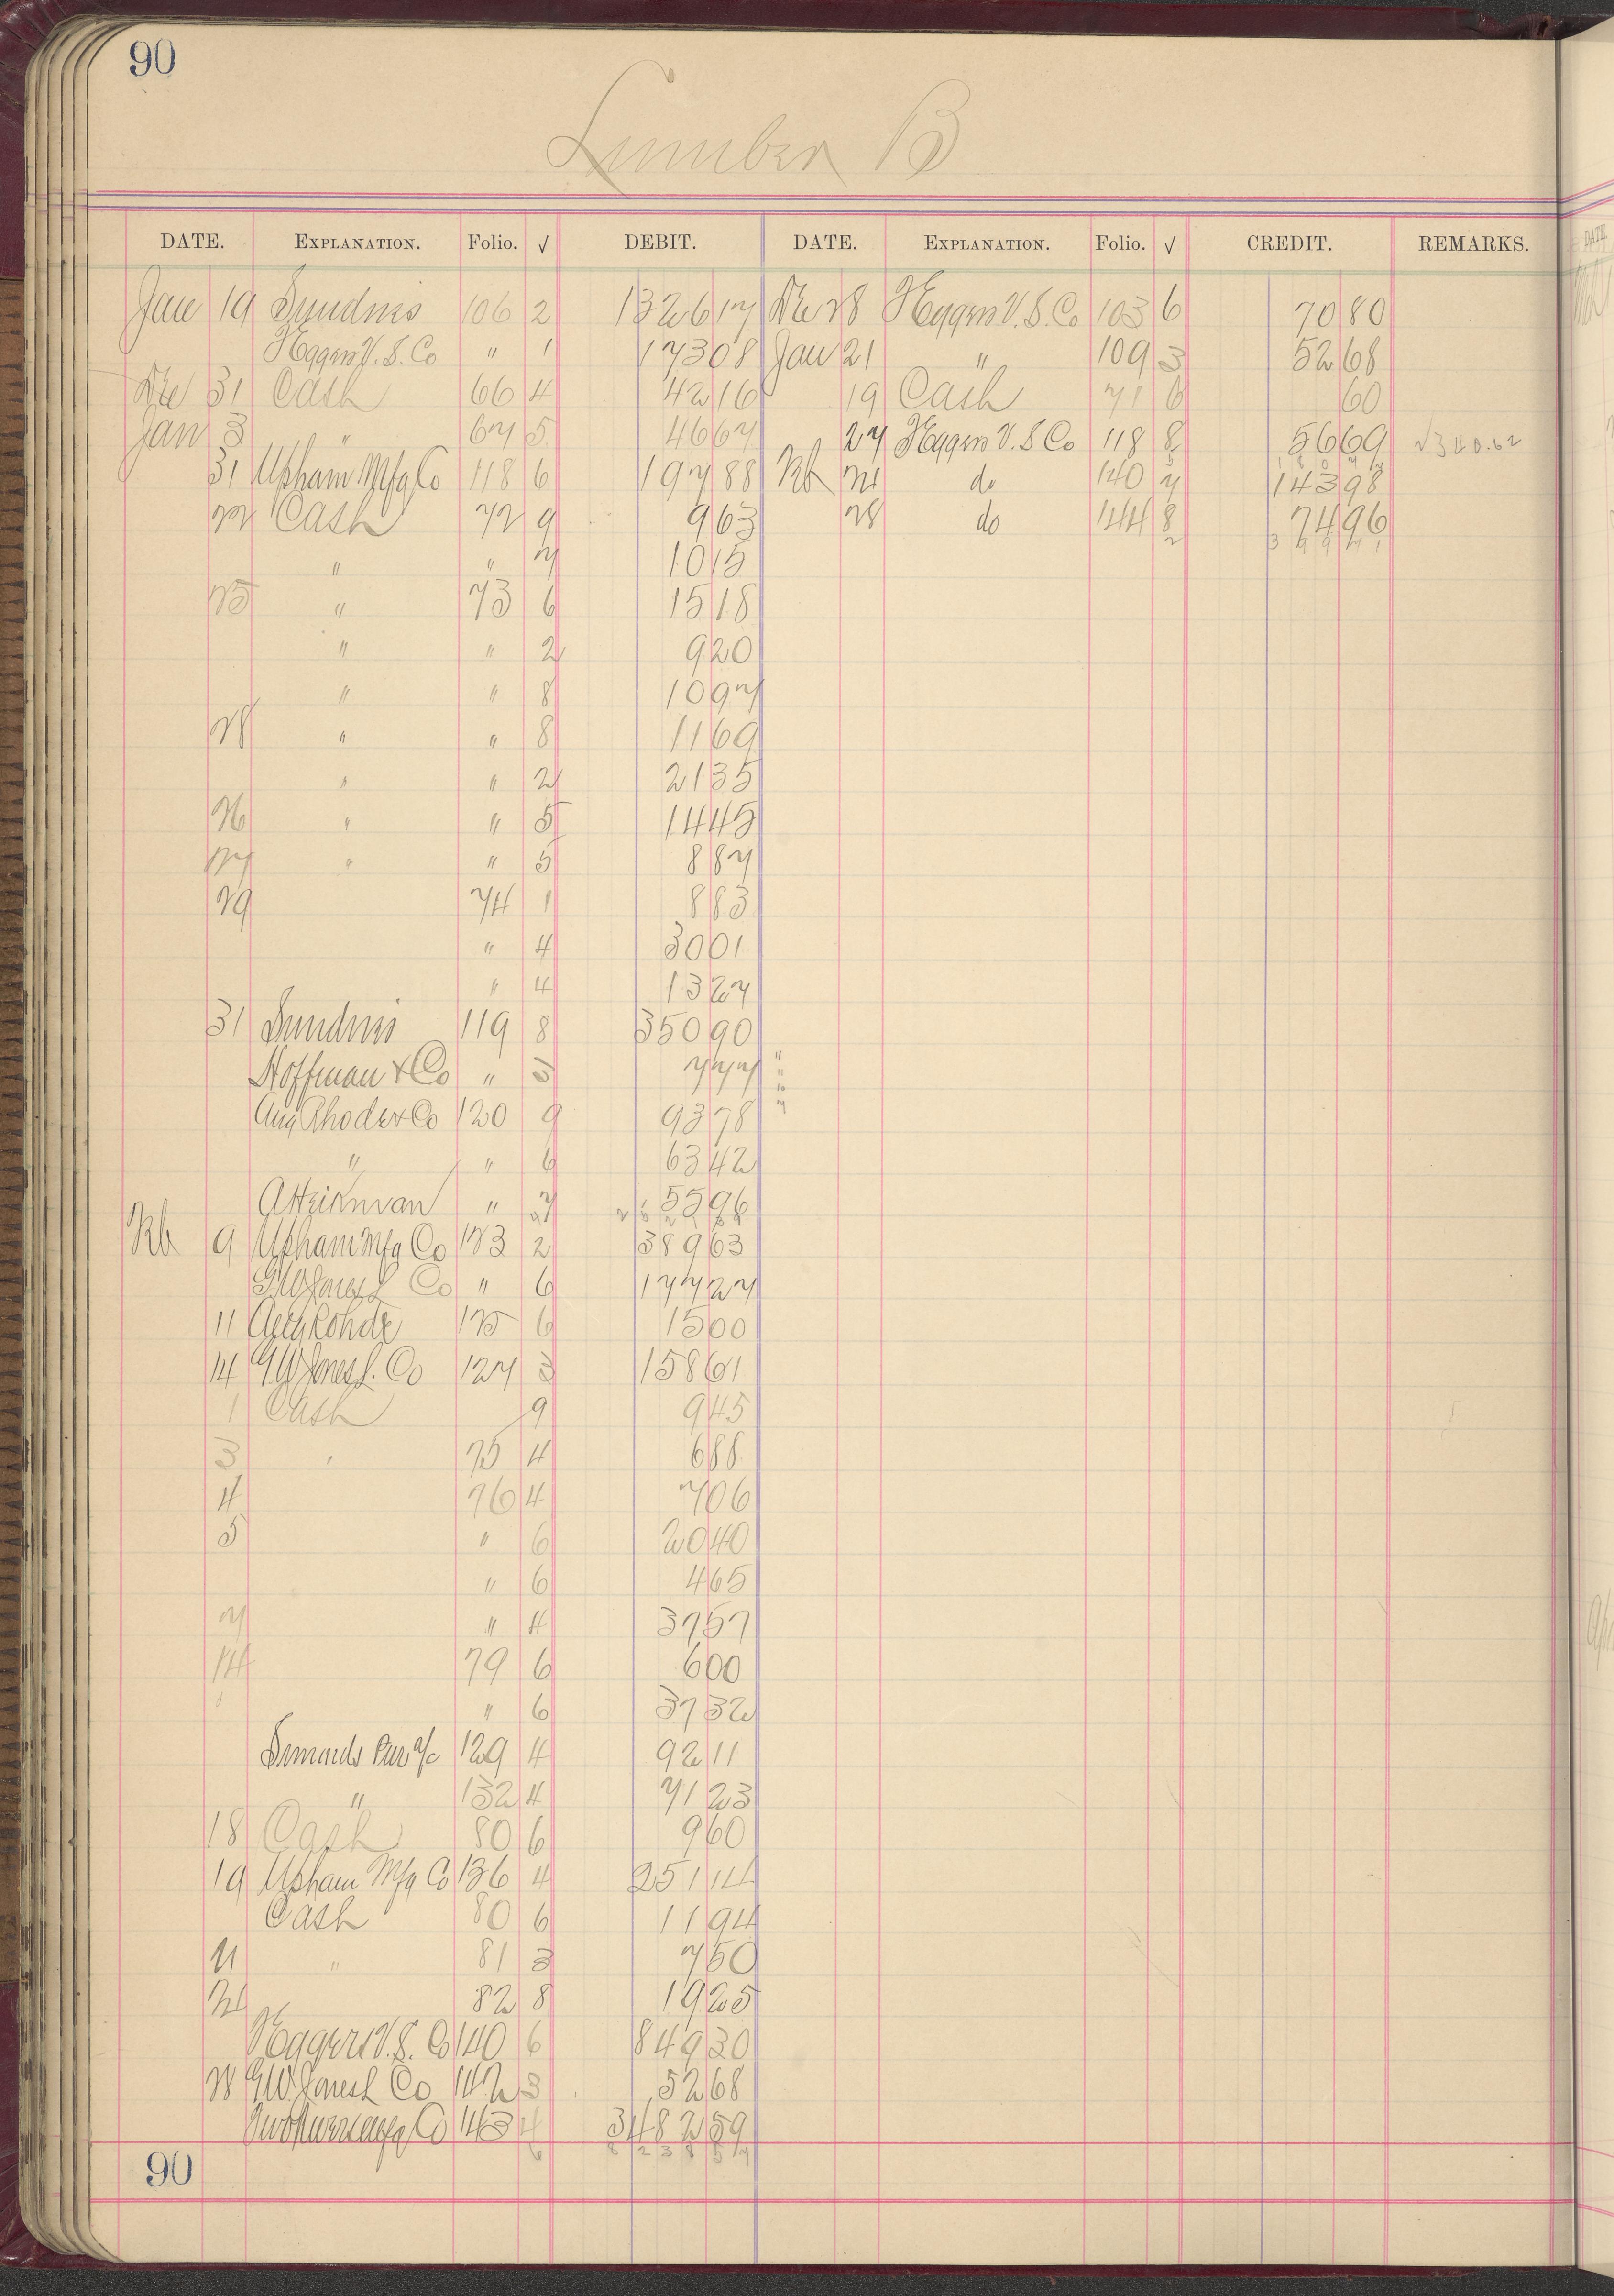 90
Lumber B
DATE. EXPLANATION. Folio. √ DEBIT. DATE. EXPLANATION. Folio. √ CREDIT. REMARKS.
Jan 19 Sundries 106 2 1326 17 Dec 28 Heggen V. S. Co 103 6 70 80
Heggen V. S. Co " 1 173 08 Jan 21 " 109 3 52 68
Dec 31 Cash 66 4 42 16 19 Cash 71 6 60
Jan 3 " 67 5 46 67 27 Heggen V. S Co 118 8 56 69 √340.62
31 Upham Mfg Co 118 6 197 88 Feb 21 do 140 7 143 98
22 Cash 72 9 9 63 28 do 144 8 74 96
" " 7 10 15 2 3 9 9 7 1
25 " 73 6 15 18
" " 2 9 20
" " 8 10 97
28 " " 8 11 69
" " 2 21 35
26 " " 5 14 45
27 " " 5 8 87
29 74 1 8 83
" 4 30 01
" 4 13 27
31 Sundries 119 8 350 90
Hoffman & Co " 3 7 77
Aug Rhode & Co 120 9 93 78
" " 6 63 42
" 7 55 96
Feb 9 Upham Mfg Co 123 2 389 63
G W Jones L Co " 6 177 27
11 125 6 15 00
14 G W Jones L. Co 127 3 158 61
1 Cash 9 9 45
3 " 75 4 6 88
4 76 4 7 06
5 " 6 20 40
" 6 4 65
7 " 4 37 57
14 79 6 6 00
" " 6 37 32
129 4 92 11
" 132 4 71 23
18 Cash 80 6 9 60
19 Upham Mfg Co 136 4 251 14
Cash 80 6 11 94
21 " 81 3 7 50
82 8 19 25
Heggen V. S. Co 140 6 849 30
28 G W Jones L Co 142 3 52 68
Two Rivers Mfg Co 143 4 3482 59
6 8 2 3 8 5 7
90